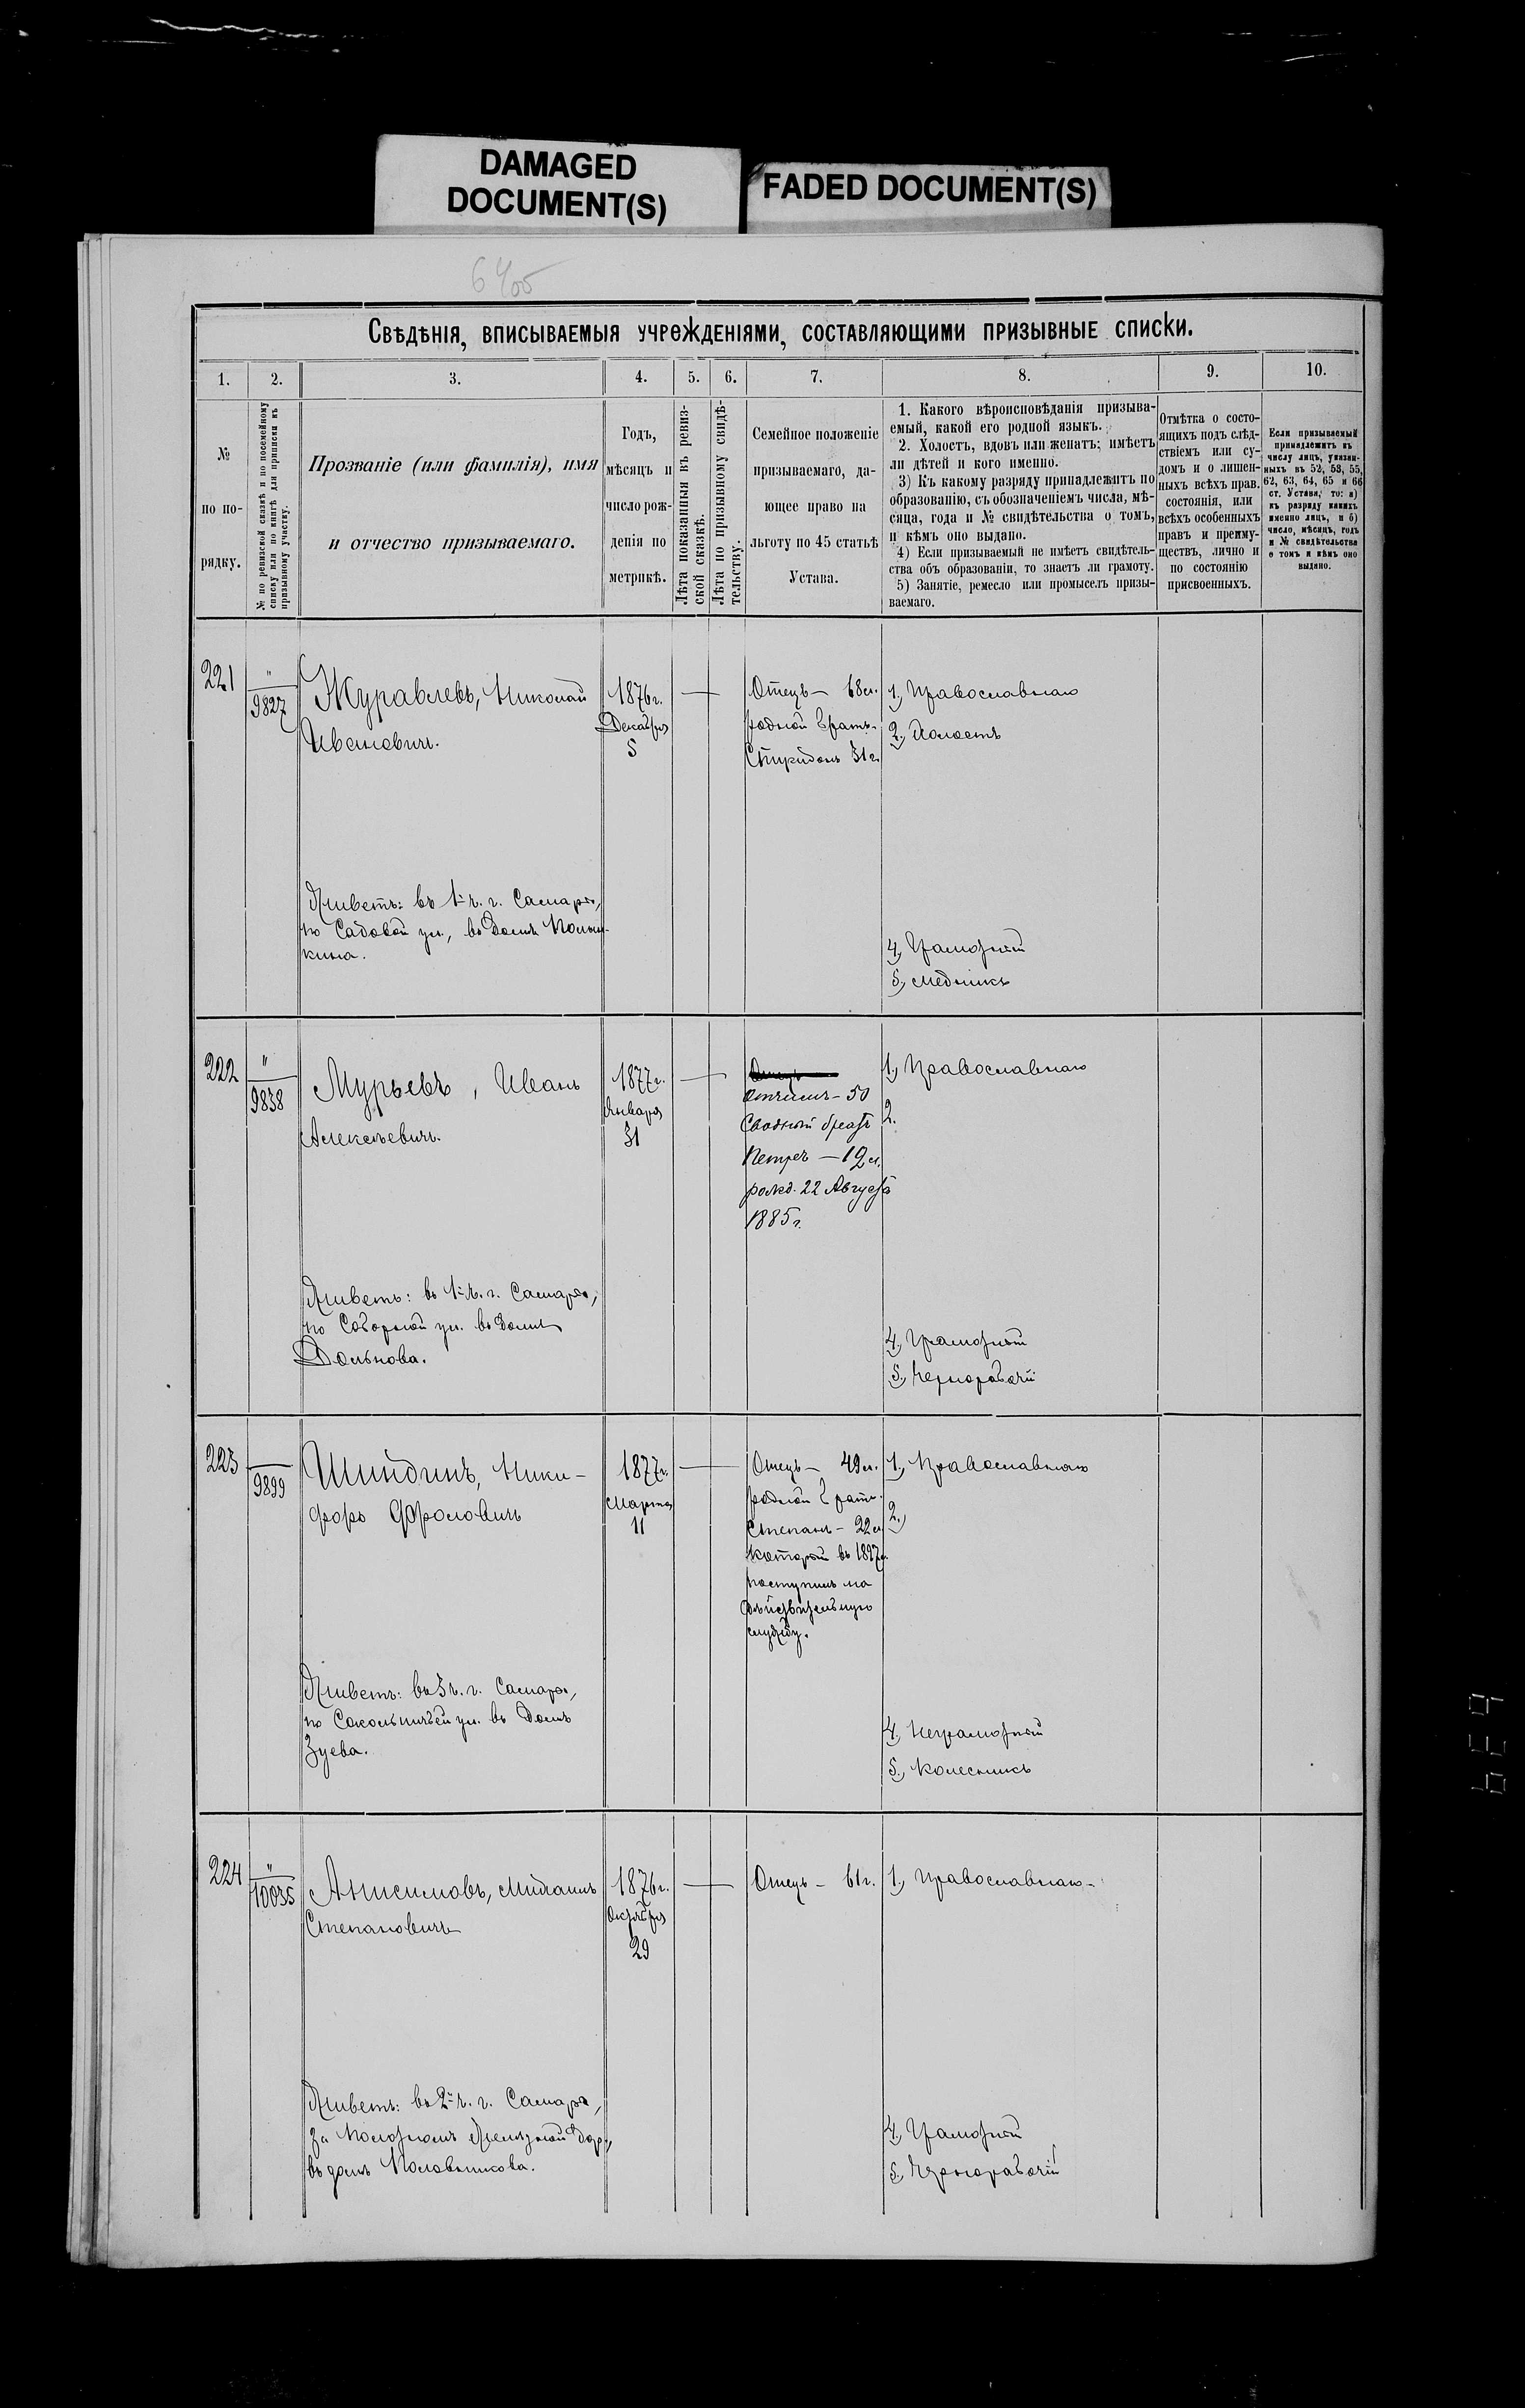 DAMAGED
DOCUMENT(S)
FADED DOCUMENT(S)
Свѣдѣнія, вписываемыя учрежденіями, составляющими призывные списки.
1.
2.
3.
4.
5.
6.
7.
8.
9.
10.
№
по по-
рядку.
№ по ревизской сказкѣ и по посемейному
списку или по книгѣ для приписки къ
призывному участку.
Прозваніе (или фамилія), имя
и отчество призываемаго.
Годъ,
мѣсяцъ и
число рож-
денія по
метрикѣ.
Лѣта показанныя въ ревиз-
ской сказкѣ.
Лѣта по призывному свидѣ-
тельству.
Семейное положеніе
призываемаго, да-
ющее право на
льготу по 45 статьѣ
Устава.
1. Какого вѣроисповѣданія призыва-
емый, какой его родной языкъ.
2. Холостъ, вдовъ или женатъ; имѣетъ
ли дѣтей и кого именно.
3) Къ какому разряду принадлежитъ по
образованію, съ обозначеніемъ числа, мѣ-
сяца, года и № свидѣтельства о томъ,
и кѣмъ оно выдано.
4) Если призываемый не имѣетъ свидѣтель-
ства объ образованіи, то знаетъ ли грамоту.
5) Занятіе, ремесло или промыселъ призы-
ваемаго.
Отмѣтка о состо-
ящихъ подъ слѣд-
ствіемъ или су-
домъ и о лишен-
ныхъ всѣхъ прав.
состоянія, или
всѣхъ особенныхъ
правъ и преиму-
ществъ, лично и
по состоянію
присвоенныхъ.
Если призываемый
принадлежитъ къ
числу лицъ, указан-
ныхъ въ 52, 53, 55,
62, 63, 64, 65 и 66
ст. Устава, то: а)
къ разряду какихъ
именно лицъ, и б)
число, мѣсяцъ, годъ
и № свидѣтельства
о томъ и кѣмъ оно
выдано.
221
"
9827
Журавлевъ, Николай
Ивановичъ.
1876 г.
Декабря
5
Отецъ — 68 л.
родной братъ
Спиридонъ 31 г.
1., Православнаго
2., Холостъ
Живетъ: въ 1й ч. г. Самары,
по Садовой ул., въ домѣ
кина.
4., Грамотный
5., Медникъ
222
"
9838
Мурьевъ, Иванъ
Алексѣевичъ.
1877 г.
Января
31
Отецъ
Отчимъ - 50
Сводный братъ
Петръ — 12 л.
рожд. 22 Августа
1885 г.
1., Православнаго
2.
Живетъ: въ 1й ч. г. Самары,
по Соборной ул. въ домѣ
Долькова.
4., Грамотный
5., Чернорабочій
223
9899
Шиндинъ, Ники-
форъ Фроловичъ
1877 г.
Марта
11
Отецъ — 49 л.
родной братъ
Степанъ — 22 л.
который въ 1897 г.
поступилъ на
дѣйствительную
службу.
1., Православнаго
2.,
Живетъ: въ 3 ч. г. Самары,
по Сокольничьей ул. въ домѣ
Зуева.
4., Неграмотный
5., Колесникъ
224
"
10035
Анисимовъ, Михаилъ
Степановичъ
1876 г.
Октября
29
Отецъ — 61 г.
1., Православнаго
Живетъ: въ 2й ч. г. Самары,
за Желѣзной дор.,
въ домѣ Половникова.
4., Грамотный
5., Чернорабочій
639